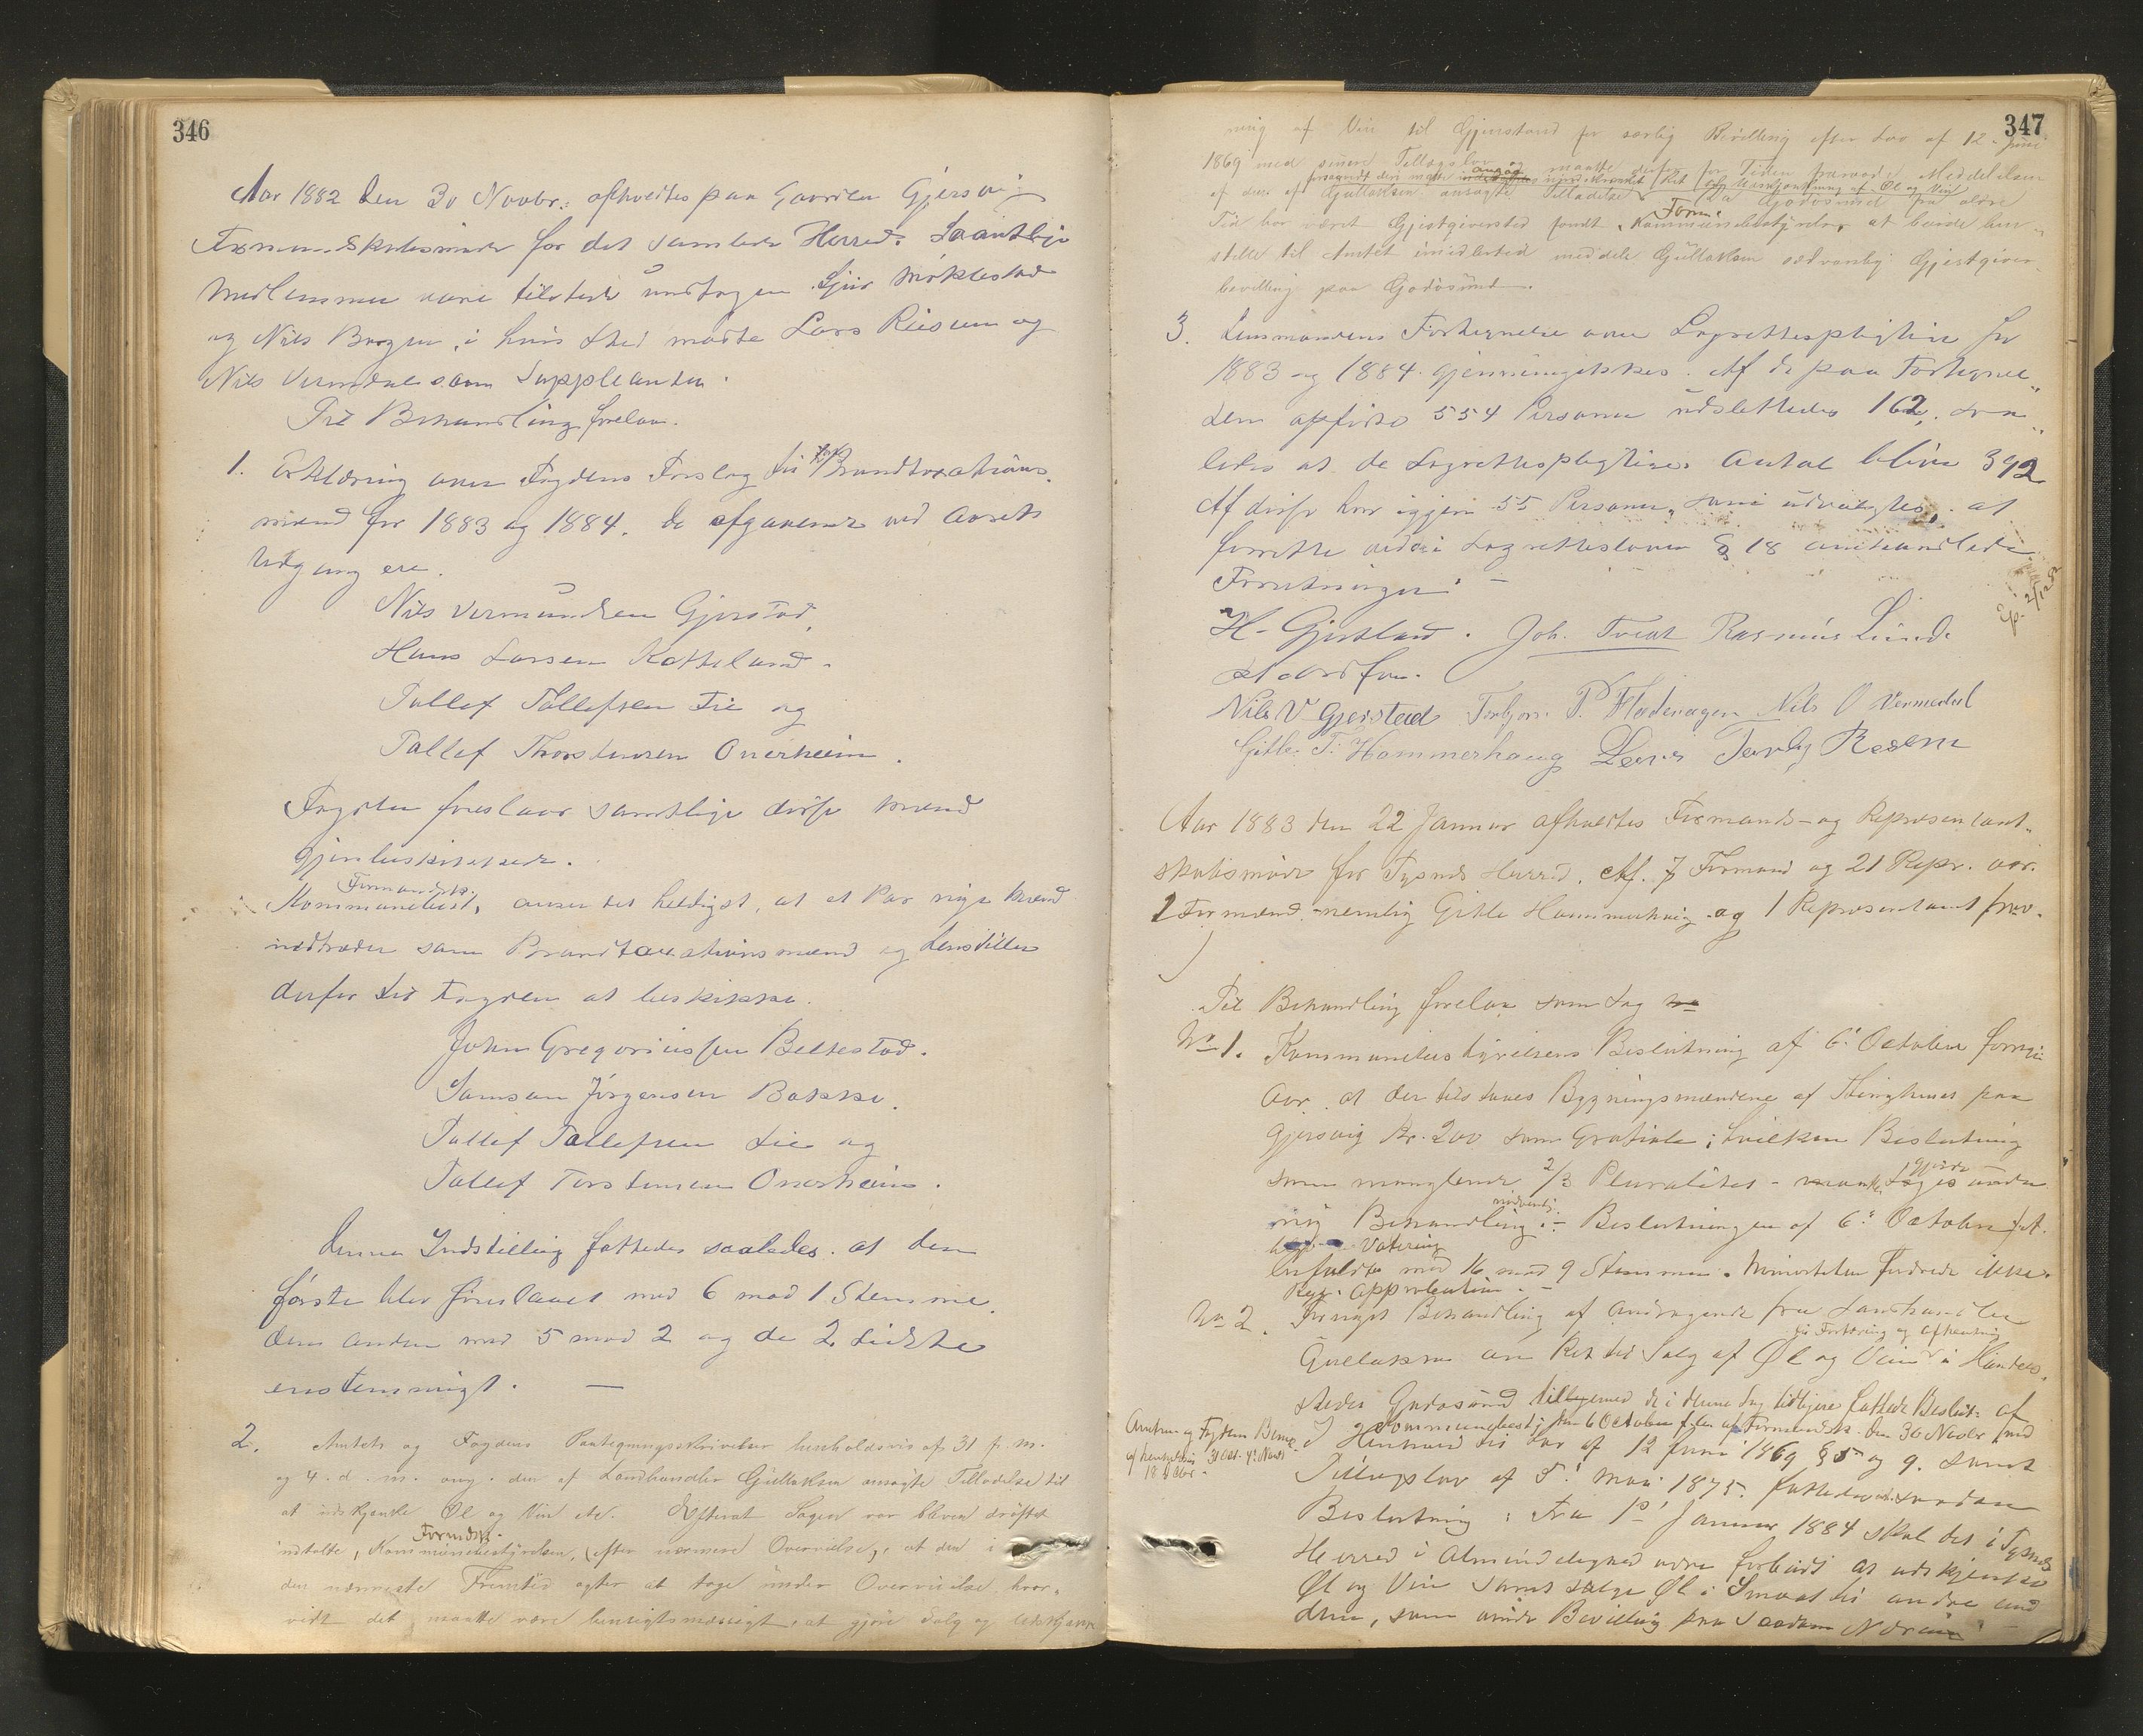 346
Aar 1882 den 30 Novbr. afholdtes paa Gaarden Gjersvig
Formandskabsmøde for det samlede Herred. Samtlige
Medlemmer vare tilstede undtagen Sjur Møklestad
og Nils Bergen, i hvis Sted mødte Lars Reisem og
Nils Vermedal som Suppleanter.
Til Behandling forelaa.
1. Erklæring over Fogdens Forslag til Brandtaxations
mænd for 1883 og 1884. De afgaaende ved Aarets
Udgang ere.
Nils Vermundsen Gjerstad,
Hans Larsen Kotteland.
Tollef Tollefsen Lie og
Tollef Thorstensen Onerheim.
Fogden foreslaar samtlige disse Mænd
gjenbeskikkede.
Formandsk.
Kommunebest. anser det heldigst, at et Par nye Mænd
indtræder som Brandtaxationsmænd og henstiller
derfor til Fogden at beskikke.
John Gregoriussen Beltestad.
Samson Jørgensen Bakke.
Tollef Tollefsen Lie og
Tollef Torstensen Onerheim.
Denne Indstilling fattedes saaledes at den
første blev foreslaaet med 6 mod 1 Stemme,
den anden med 5 mod 2 og de 2 sidste
enstemmigt. —
2. Amtets og Fogdens Paategningsskrivelser henholdsvis af 31 f. m.
og 4. d. m. ang. den af Landhandler Gullaksen ansøgte Tilladelse til
at udskjænke Øl og Vin etc. Efterat Sagen var bleven drøftet
Formdsk.
udtalte, Kommunebestyrelsen, efter nærmere Overveielse, at den i
den nærmeste Fremtid agter at tage under Overveielse hvor-
vidt det maatte være hensigtsmæssigt, at gjøre Salg og Udskjænk
347
ning af Vin til Gjenstand for særlig Bevilling efter Lov af 12 Juni
1869 med senere Tillægslov og maatte derfor for Tiden fraraade Meddelelsen
af den af Gullaksen ansøgte Tilladelse. Da Godøsund fra ældre
Tid har været Gjestgiversted fandt Kommunebestyrelsen at burde hen-
Form.
stille til Amtet imidlertid meddele Gullaksen sædvanlig Gjestgiver-
bevilling paa Godøsund.
3. Lensmandens Fortegnelse over Lagrettespligtige for
1883 og 1884 gjennemgikkes. Af de paa Fortegnel-
sen opførte 554 Personer udslettedes 162, saa-
ledes at de Lagrettespligtiges Antal bliver 392
Af disse bør igjen 55 Personer, som udvalgtes, at
forrette de i Lagrettesloven § 18 omhandlede
Forretninger. —
Ep. 2/12 82
H. Gjestland. Joh. Tveit Rasmus Lunde
st ordfm.
Nils V Gjerstad Torbjørn P. Flødevagen Nils O Vermedal
Gitle T. Hammerhaug Lars Terby Resem
Aar 1883 den 22 Januar afholdtes Formands- og Repræsentant-
skabsmøde for Tysnes Herred. Af 7 Formænd og 21 Repr. var
1 Formand nemlig Gitle Hammerhaug og 1 Repræsentant frav.
Til Behandling forelaa som Sag
No 1. Kommunebestyrelsens Beslutning af 6' October forrige
Aar at der tilstaaes Bygningsmændene af Thinghuset paa
Gjersvig Kr. 200 som Gratiale; hvilken Beslutning
som manglende 2/3 Pluralitet - gjøre
ny Behandling nødvendig. – Beslutningen af 6' October
Votering
med 16 mod 9 Stemmer. Minoriteten fordrede ikke
Reg. Approbation. –
No 2. Fornyet Behandling af Andragende fra Landhandler
Gullaksen om Ret til Salg af Øl og Vin i Handels-
til Fortæring og Afhentning
stedet Godøsund tilligemed de i denne Sag tidligere fattede Beslut. af
Kommunebest. den 6 October f. A. og Formandsk. den 30 Novbr.
Amtets og Fogdens Bem.
af henholdsvis 31 Oct. 4' Novb
18 Debr.
I Henhold til Lov af 12 Juni 1869 § 5 og 9. samt
Tillægslov af 5' Mai 1875. fattedes saadan
Beslutning: Fra 1' Januar 1884 skal det i Tysnes
Herred i Almindelighed være forbudt at udskjænke
Øl og Vin samt sælge Øl i Smaat til andre end
dem, som Bevilling paa saadan Næring